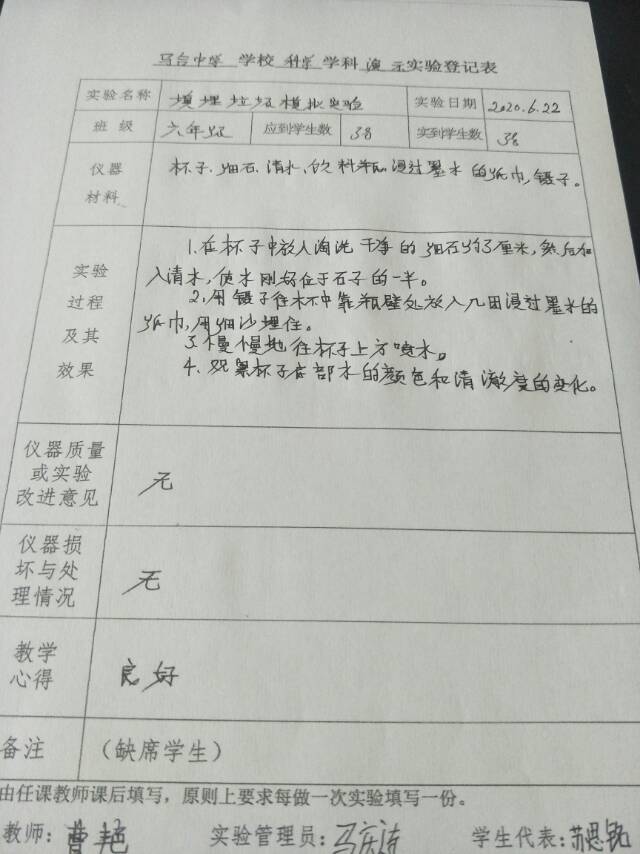 马台中学 学校 科学 学科 演 示实验登记表
实验名称 填埋垃圾模拟实验 实验日期 2020.6.22
班 级 六年级 应到学生数 38 实到学生数 38
仪器
材料
杯子、细石、清水、饮料瓶、浸过墨水的纸巾,镊子。
实验
过程
及其
效果
1.在杯子中放入淘洗干净的细石约3厘米,然后加
入清水,使水刚好位于石子的一半。
2,用镊子往杯中靠瓶壁处放入几团浸过墨水的
纸巾,用细沙埋住。
3.慢慢地往杯子上方喷水。
4、观察杯子底部水的颜色和清澈度的变化。
仪器质量
或实验
改进意见
无
仪器损
坏与处
理情况
无
教学
心得
良好
备注 (缺席学生)
由任课教师课后填写，原则上要求每做一次实验填写一份。
教师: 曹艳 实验管理员: 马 学生代表: 苏恩